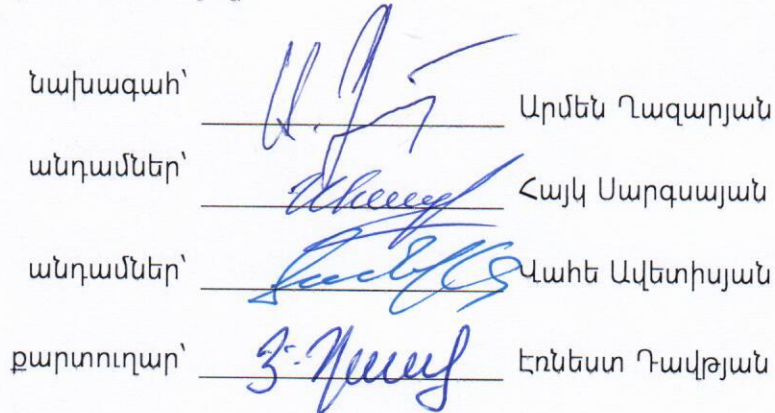 նախագահ՝ Արմեն Ղազարյան
անդամներ՝ Հայկ Սարգսայան
անդամներ՝ Վահե Ավետիսյան
քարտուղար՝ Էռնեստ Դավթյան